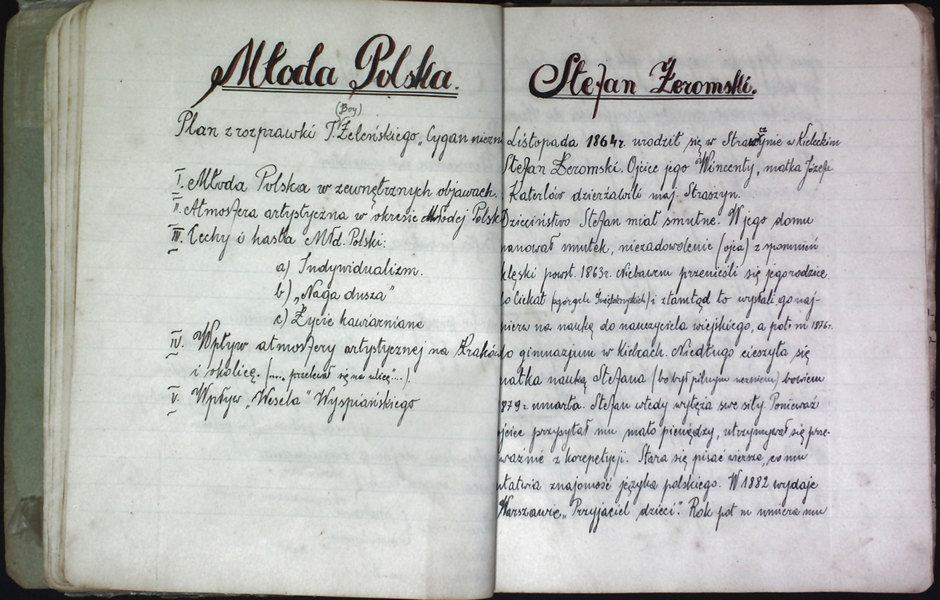 Młoda Polska.
(Boy)
Plan z rozprawki T. Żeleńskiego „Cygan niezn
I. Młoda Polska w zewnętrznych objawach.
II. Atmosfera artystyczna w okresie Młodej Polsk
III. Cechy i hasła Mł. Polski:
a) Indywidualizm.
b) „Naga dusza"
c) Życie kawiarniane
IV. Wpływ atmosfery artystycznej na Kraków
i okolicę. (.... przelewał się na ulicę"...).
V. Wpływ „Wesela" Wyspiańskiego
Stefan Żeromski.
Listopada 1864r. urodził się w Strawczynie w Kieleckim
Stefan Żeromski. Ojciec jego Wincenty, matka Józefa
Katerlów dzierżawili maj. Straszyn.
Dzieciństwo Stefan miał smutne. W jego domu
panował smutek, niezadowolenie (ojca) z wspomnień
klęski powst. 1863r. Niebawem przenieśli się jego rodzice
do Ciekot (pgórzach Świętokrzyskich) i stamtąd to wysłali go naj-
pierw na naukę do nauczyciela wiejskiego, a potem 1876r.
do gimnazjum w Kielcach. Niedługo cieszyła się
matka nauką Stefana (bo był pilnym uczniem) bowiem
1879r. umarła. Stefan wtedy wytęża swe siły. Ponieważ
ojciec przysyłał mu mało pieniędzy, utrzymywał się prze-
ważnie z korepetycji. Stara się pisać wiersze, co mu
ułatwia znajomość języka polskiego. W 1882 wydaje
Warszawie „Przyjaciel dzieci". Rok potem umiera mu